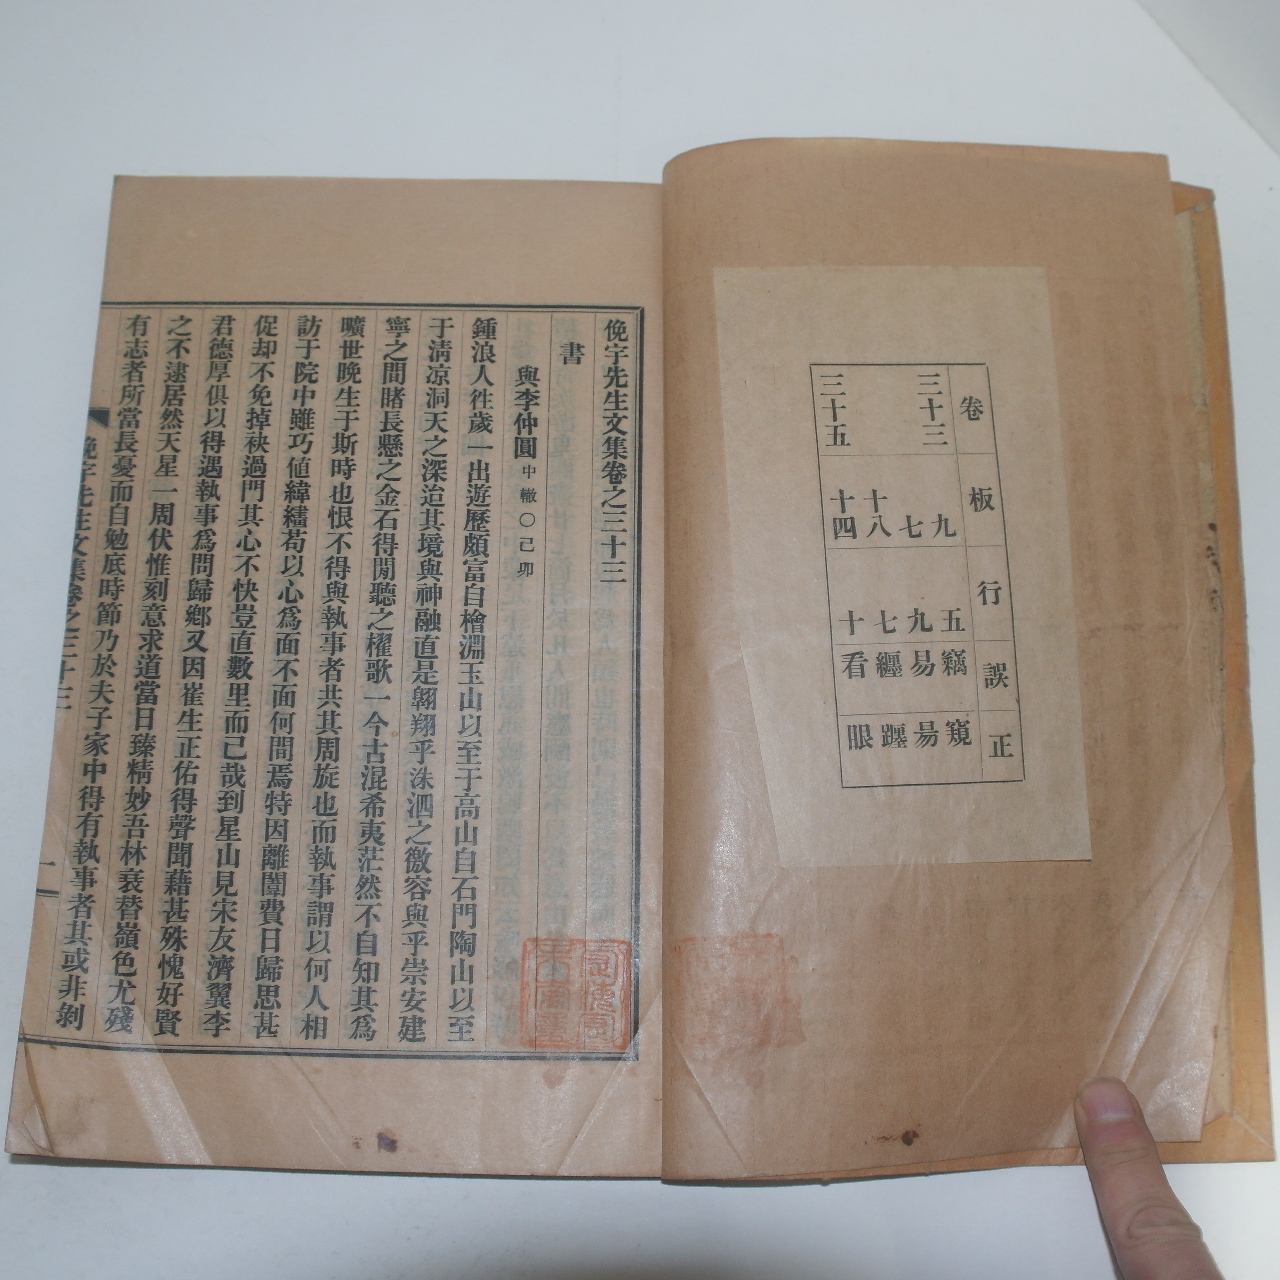 卷 板 行 誤 正
三十三 九 五 竊 窺
七 九 易 昜
十八 七 纏 躔
三十五 十四 十 看 眼
俛宇先生文集卷之三十三
書
與李仲圓中轍○己卯
鍾浪人徃歲一出遊歷頗富自檜淵玉山以至于高山白石門陶山以至
于淸凉洞天之深迨其境與神融直是翱翔乎洙泗之徼容與乎崇安建
寧之間睹長懸之金石得閒聽之櫂歌一今古混希夷茫然不自知其爲
曠世晚生于斯時也恨不得與執事者共其周旋也而執事謂以何人相
訪于院中雖巧値緯繣苟以心爲面不面何間焉特因離闈費日歸思甚
促却不免掉袂過門其心不快豈直數里而已哉到星山見宋友濟翼李
君德厚俱以得遇執事爲問歸鄕又因崔生正佑得聲聞藉甚殊愧好賢
之不逮居然天星一周伏惟刻意求道當日臻精妙吾林衰替嶺色尤殘
有志者所當長憂而自勉底時節乃於夫子家中得有執事者其或非剝
俛宇先生文集卷之三十三
一